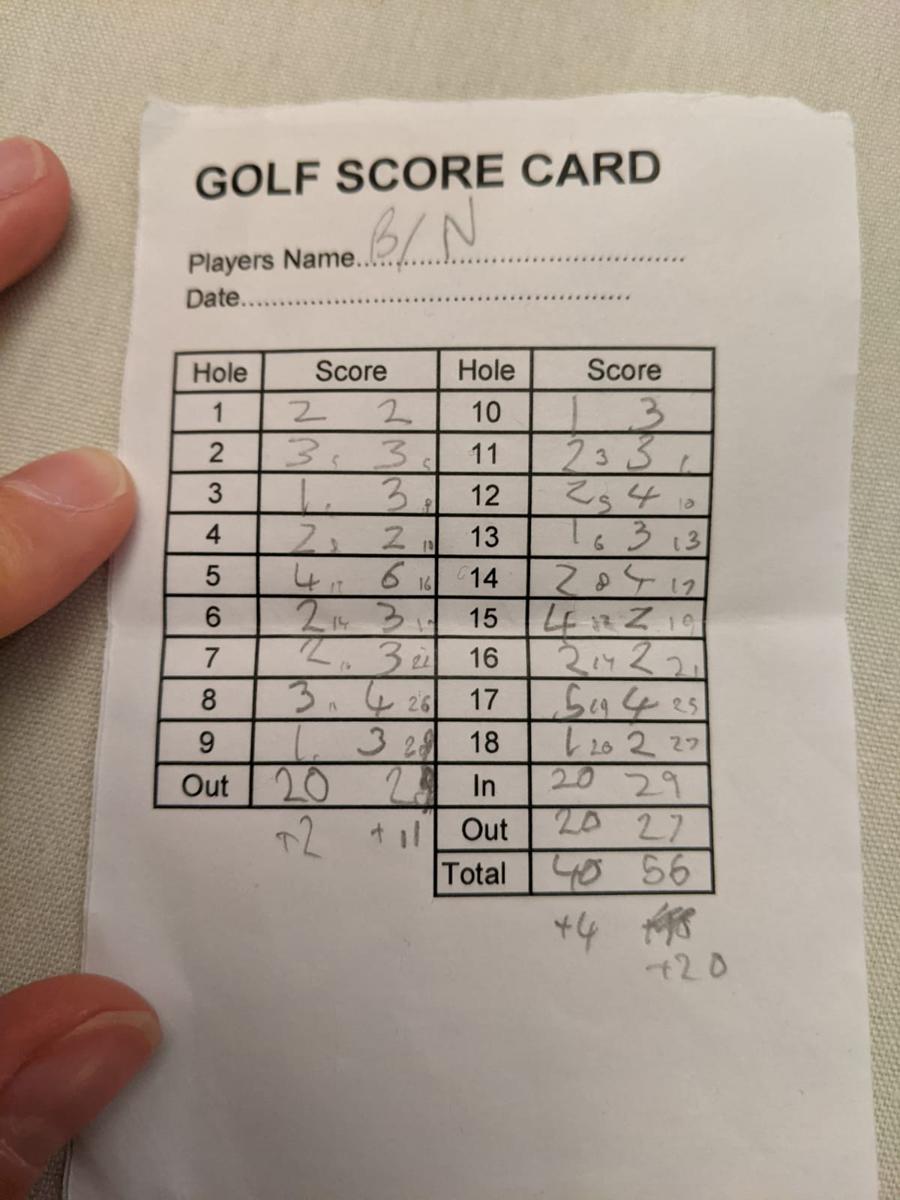 GOLF SCORE CARD
Players Name B/N
Date
Hole Score Hole Score
1 2 2 10 1 3
2 3 5 3 5 11 2 3 3 6
3 1 3 8 12 2 5 4 10
4 2 2 10 13 1 6 3 13
5 4 12 6 16 14 2 8 4 17
6 2 14 3 15 4 12 2 19
7 2 3 22 16 2 14 2 21
8 3 4 26 17 5 19 4 25
9 1 3 18 1 20 2 27
Out 20 In 20 29
+2 +11 Out 20 27
Total 40 56
+4
+20